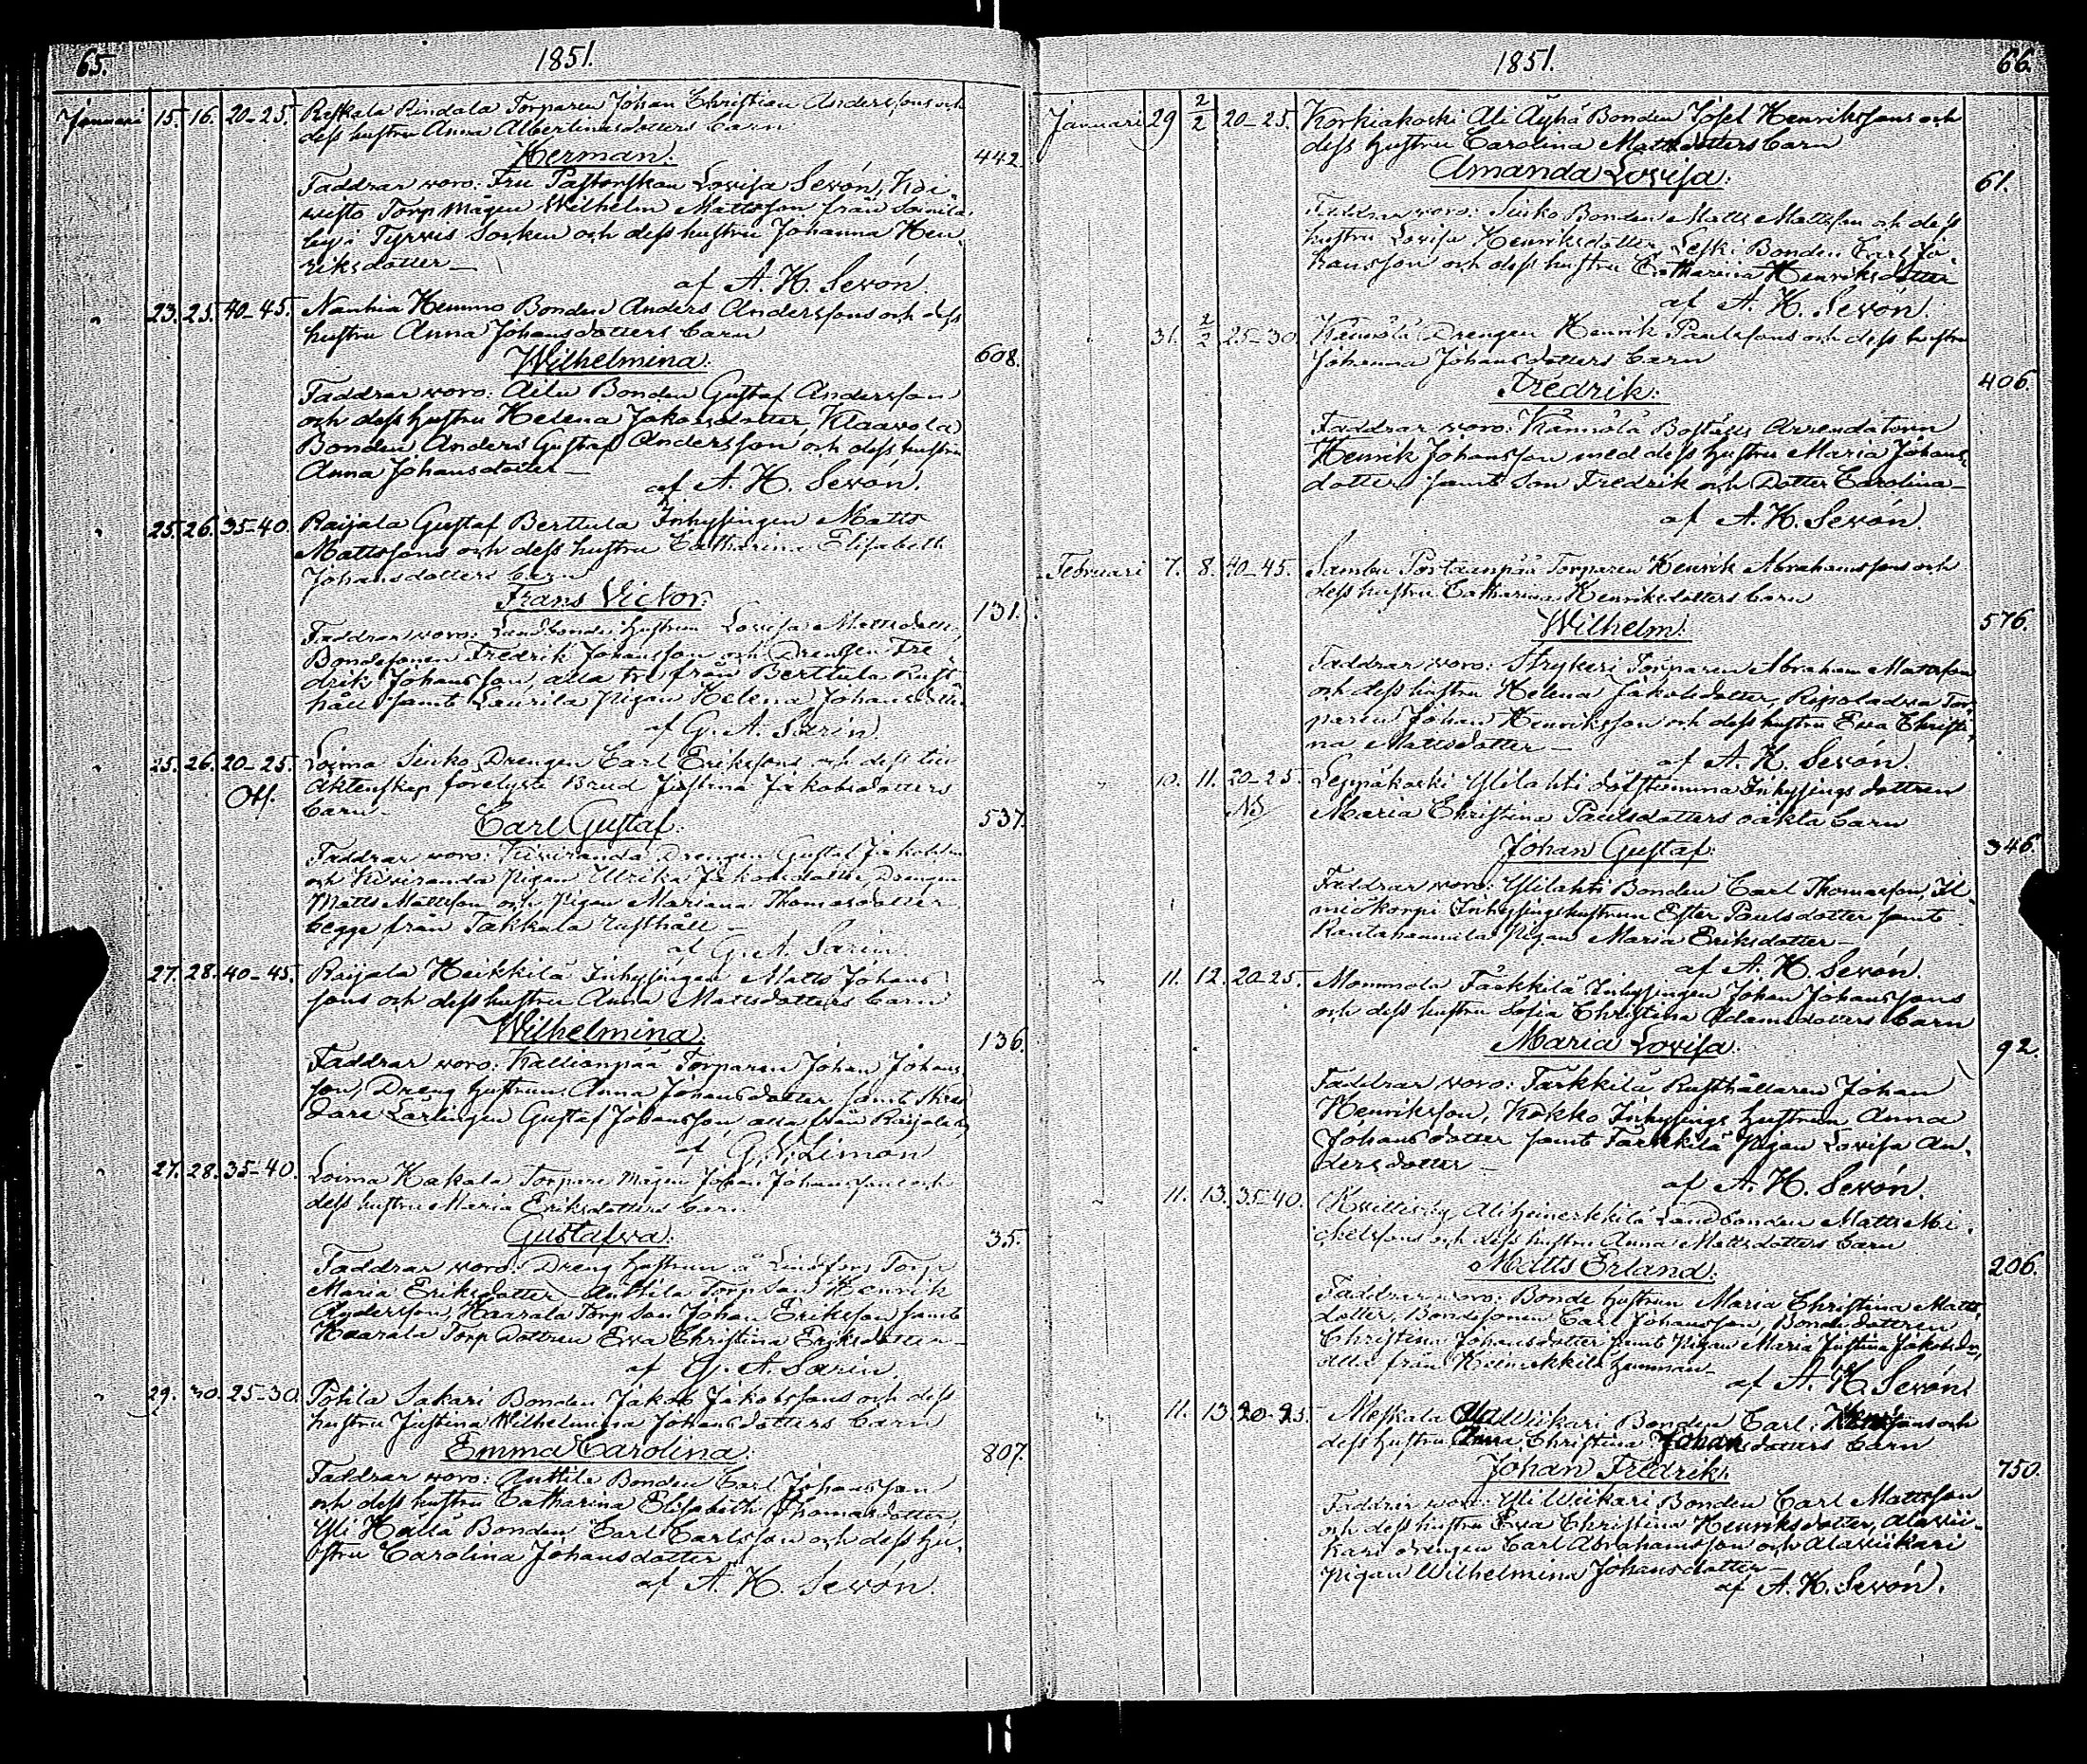 65.
1851.
Januari 15. 16. 20-25. Reskala Rindala Torparen Johan Christian Anderssons och
dess hustru Anna Albertinasdotters barn
Herman. 442.
Faddrar woro: Fru Pastorskan Lovisa Sevón, Koi-
wisto Torp mågen Wilhelm Mattsson från Soinila
by i Tyrvis Socken och dess hustru Johanna Hen-
riksdotter
af A. H. Sevón.
" 23. 25. 40-45. Nanhia Hemmo Bonden Anders Anderssons och dess
hustru Anna Johansdotters barn
Wilhelmina. 608.
Faddrar woro: Bonden Gustaf Andersson
och dess hustru Helena Jakobsdotter, Klaavola
Bonden Anders Gustaf Andersson och dess hustru
Anna Johansdotter
af A. H. Sevón.
" 25. 26. 35-40. Raijala Gustaf Berttula Inhysingen Matts
Mattssons och dess hustru Catharina Elisabeth
Johansdotters barn
Frans Victor. 131.
Faddrar woro: Landbonde hustrun Lovisa Mattsdotter,
Bondesonen Fredrik Johansson och Drengen Fre-
drik Johansson, alla tre från Berttula Rust-
håll samt Laurila Pigan Helena Johansdotter
af G. A. Sarin
" 25. 26. 20-25. Loima Sinko Drengen Carl Erikssons och dess till
Off. Äktenskap förelyste Brud Justina Jakobsdotters
barn
Carl Gustaf. 537.
Faddrar woro: Kiviranda Drengen Gustaf Jakobsson
och Kiviranda Pigan Ulrika Jakobsdotter, Drengen
Matts Mattsson och Pigan Mariana Thomasdotter
begge från Takkula rusthåll
af G. A. Sarin.
27. 28. 40-45. Raijala Heikkilä Inhysingen Matts Johans-
sons och dess hustru Anna Mattsdotters barn
Wilhelmina. 136.
Faddrar woro: Kallionpää Torparen Johan Johans-
son, Dreng hustrun Anna Johansdotter samt Skred-
dare Lärlingen Gustaf Johansson, alla från Raijala by
af G. Limón
" 27. 28. 35-40. Loima Kakala Torpare mågen Johan Johanssons och
dess hustru Maria Eriksdotters barn
Gustafva. 35.
Faddrar woro: Dreng hustrun å Lindfors Torp
Maria Eriksdotter Anttila Torp Son Henrik
Andersson, Haarala Torp Son Johan Eriksson samt
Haarala Torp Dottren Eva Christina Eriksdotter
af G. A. Sarin.
" 29. 30. 25-30. Potila Sakari Bonden Jakob Jakobssons och dess
hustru Justina Wilhelmina Johansdotters barn
Emma Carolina. 807.
Faddrar woro: Anttila Bonden Carl Johansson
och dess hustru Catharina Elisabeth Thomasdotter,
Yli Källä Bonden Carl Carlsson och dess hu-
stru Carolina Johansdotter
af A. H. Sevón.
1851.
66.
Januari 29 2/2 20-25. Korkiakoski Ali Äyhö Bonden Josef Henrikssons och
dess hustru Carolina Mattsdotters barn
Amanda Lovisa. 61.
Faddrar woro: Sinko Bonden Matts Mattsson och dess
hustru Lovisa Henriksdotter, Leski Bonden Carl Jo-
hansson och dess hustru Catharina Henriksdotter
af A. H. Sevón.
31. 2/2 25-30. Kännölä Drengen Henrik Paulssons och dess hustru
Johanna Johansdotters barn
Fredrik. 406.
Faddrar woro: Kännölä Boställs Arrendatorn
Henrik Johansson med dess hustru Maria Johans-
dotter samt Son Fredrik och Dotter Carolina
af A. H. Sevón.
Februari 7. 8. 40-45. Sambu Portaanpää Torparen Henrik Abrahamssons och
dess hustru Catharina Henriksdotters barn
Wilhelm. 576.
Faddrar woro: Strykeri Torparen Abraham Mattsson
och dess hustru Helena Jakobsdotter, Tor-
paren Johan Henriksson och dess hustru Eva Christi-
na Mattsdotter
af A. H. Sevón.
10. 11. 20-25. Leppäkoski Ylilahti döfstumma Inhysings dottren
Maria Christina Paulsdotters oäkta barn
Johan Gustaf. 346.
Faddrar woro: Ylilahti Bonden Carl Thomasson, Il-
miökorpi Inhysingshustrun Ester Paulsdotter samt
Rautahannula Pigan Maria Eriksdotter
af A. H. Sevón.
11. 12. 20-25. Mommola Tärkkilä Inhysingen Johan Johanssons
och dess hustru Sofia Christina Adamsdotters barn
Maria Lovisa. 92.
Faddrar woro: Tärkkilä Rusthållaren Johan
Henriksson, Kokko Inhysings hustrun Anna
Johansdotter samt Tärkkilä Pigan Lovisa An-
dersdotter
af A. H. Sevón.
11. 13. 35-40. Aliheinikkilä Landbonden Matts Mi-
chelssons och dess hustru Anna Mattsdotters barn
Matts Erland. 206.
Faddrar woro: Bonde hustrun Maria Christina Matts-
dotter, Bondesonen Carl Johansson, Bonde dottren
Christina Johansdotter samt Pigan Maria Justina Jakobsdr,
alla från Heinikkilä hemman
af A. H. Sevón.
11. 13. 20-25. Meskala Ala Wiikari Bonden Carl och
dess hustru Anna Christina Johansdotters barn
Johan Fredrik. 750.
Faddrar woro: Yli Wiikari Bonden Carl Mattsson
och dess hustru Eva Christina Henriksdotter, Alawii-
kari drengen Carl Abrahamsson och Alawiikari
pigan Wilhelmina Johansdotter
af A. H. Sevón.